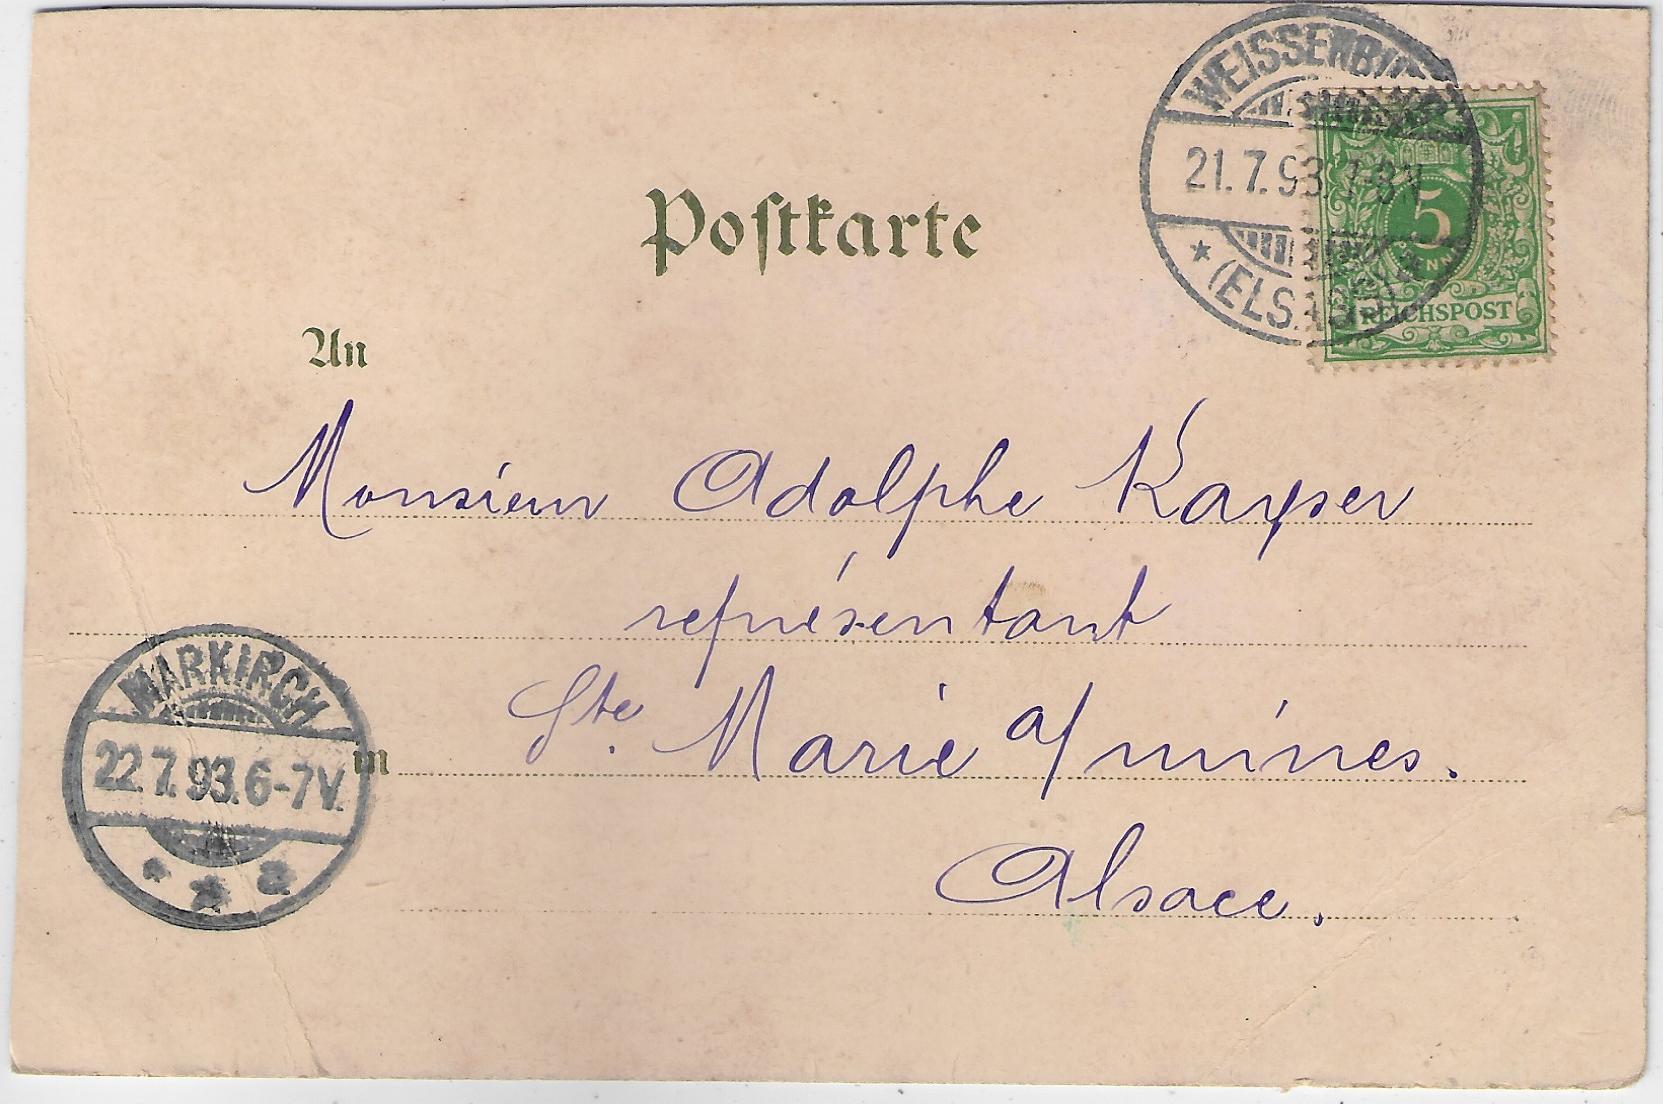 WEISSENBURG
21.7.93. 7-8N
* (ELSASS) a
5
REICHSPOST
Postkarte
An
Monsieur Adolphe Kayser
représentant
Ste. Marie a/ mines.
Alsace.
in
MARKIRCH
22.7.93.6-7V.
* * a